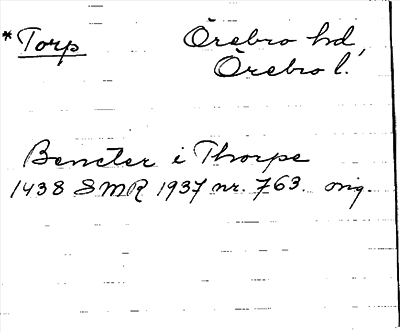 *Torp Örebro hd,
Örebro l.
Bencter i Thorpe
1438 SMR 1937 nr. 763. orig.